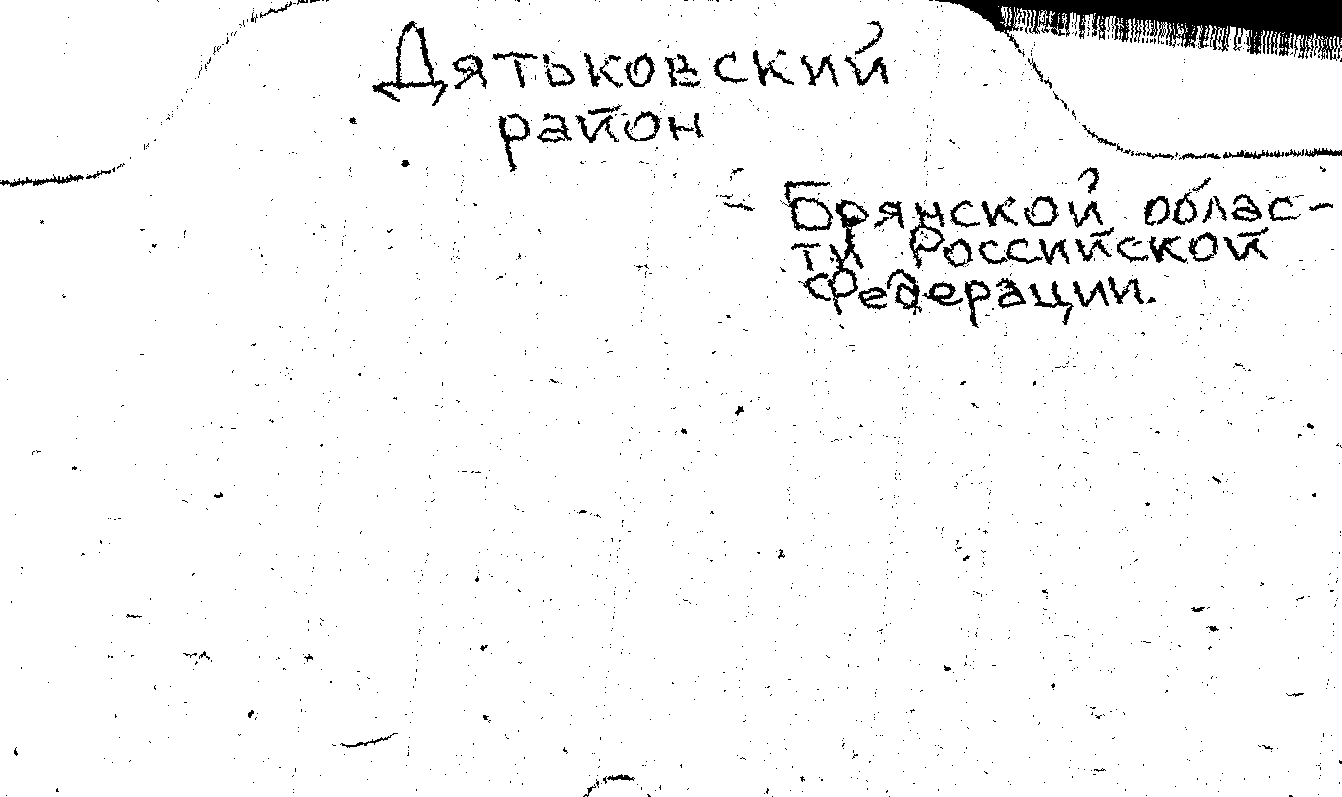 Дятьковский
район
- Брянской облас-
ти Российской
Федерации.